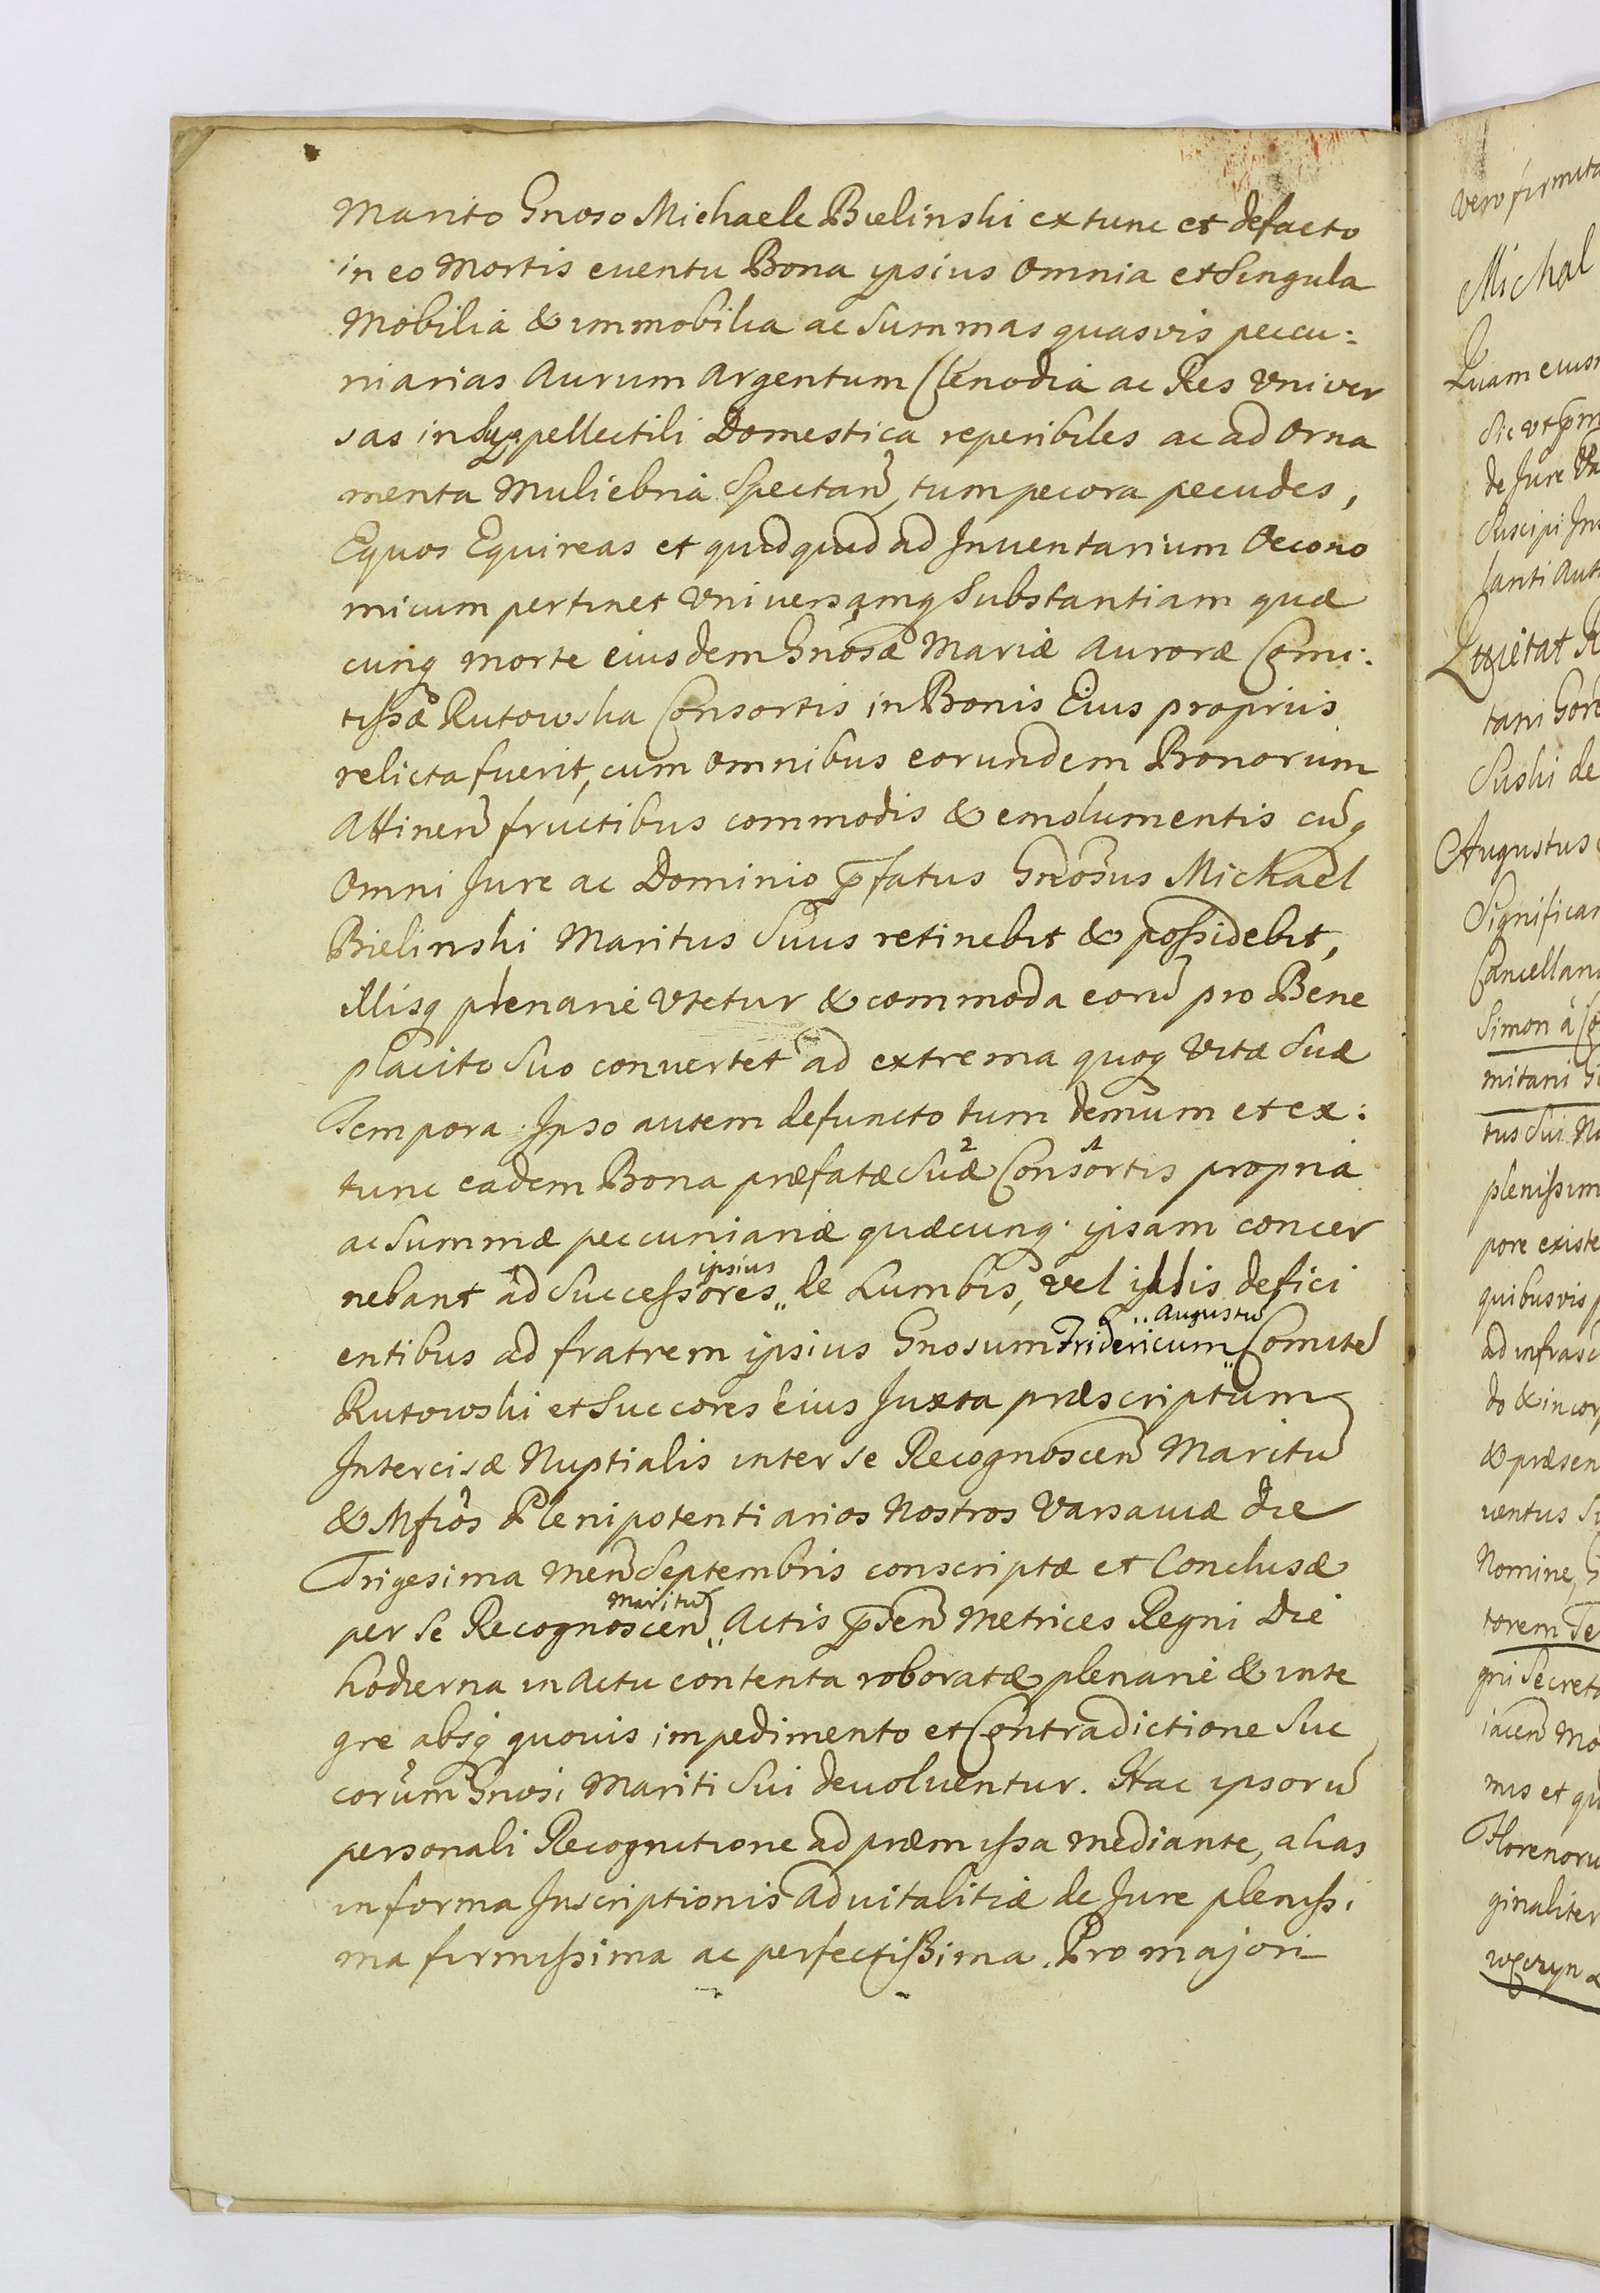 Marito Gnoso Michaele Bielinski extunc et defacto
in eo Mortis euentu Bona ipsius Omnia et Singula
Mobilia & immobilia ac Summas quasvis peccu:
niarias Aurum Argentum Clenodia ac Res Univer
sas in Suppellectili Domestica reperibiles ac ad Orna
menta Muliebria Spectan, tum pecora pecudes,
Equos Equireas et quidquid ad Inuentarium Oecono
micum pertinet Universamq Substantiam quæ
cunq morte eiusdem Gnosæ Mariæ Auroræ Comi:
tissæ Rutowska Consortis in Bonis Eius proprijs
relicta fuerit, cum Omnibus eorundem Bonorum
Attinen fructibus commodis & emolumentis cuq
Omni Jure ac Dominio pfatus Gnosus Michael
Bielinski Maritus Suus retinebit & possidebit,
illisq plenarie Utetur & commoda eoru pro Bene
placito Suo convertet ad extrema quoq Vitæ Suæ
Tempora. Ipso autem defuncto tum demum et ex:
tunc eadem Bona præfatæ Suæ 2 Consortis 1 propria
ac Summæ peccuniariæ quæcunq ipsam concer
nebant ad Successores ipsius de Lumbis, vel illis defici
entibus ad fratrem ipsius Gnosum Fridericum Augustu Comite
Rutowski et Succores eius Juxta præscriptum
Intercisæ Nuptialis inter se Recognoscen Maritu
& Mfios Plenipotentiarios Nostros Varsaviæ die
Trigesima Men Septembris conscriptæ et Conclusæ
per Se Recognoscen Maritu Actis pden Metrices Regni Die
hodierna in Actu contenta roboratæ plenarie & inte
gre absq quouis impedimento et Contradictione Suc
corum Gnosi Mariti Sui deuoluentur. Hac ipsoru
personali Recognitione ad præmissa mediante, alias
in forma Inscriptionis Aduitalitiæ de Jure plenissi
ma firmissima ac perfectissima. Pro majori
vero firmita
Michal
Quam eius
Sic
de Jure
Suscipi
Augustus
Significa
Cancellari
Simon à
mitani
tus Sui
plenissim
pore existe
quibusvis
ad infrasc
do & incor
& præsen
Nomine
torem
gni Secret
mis et
Florenoru
ginaliter